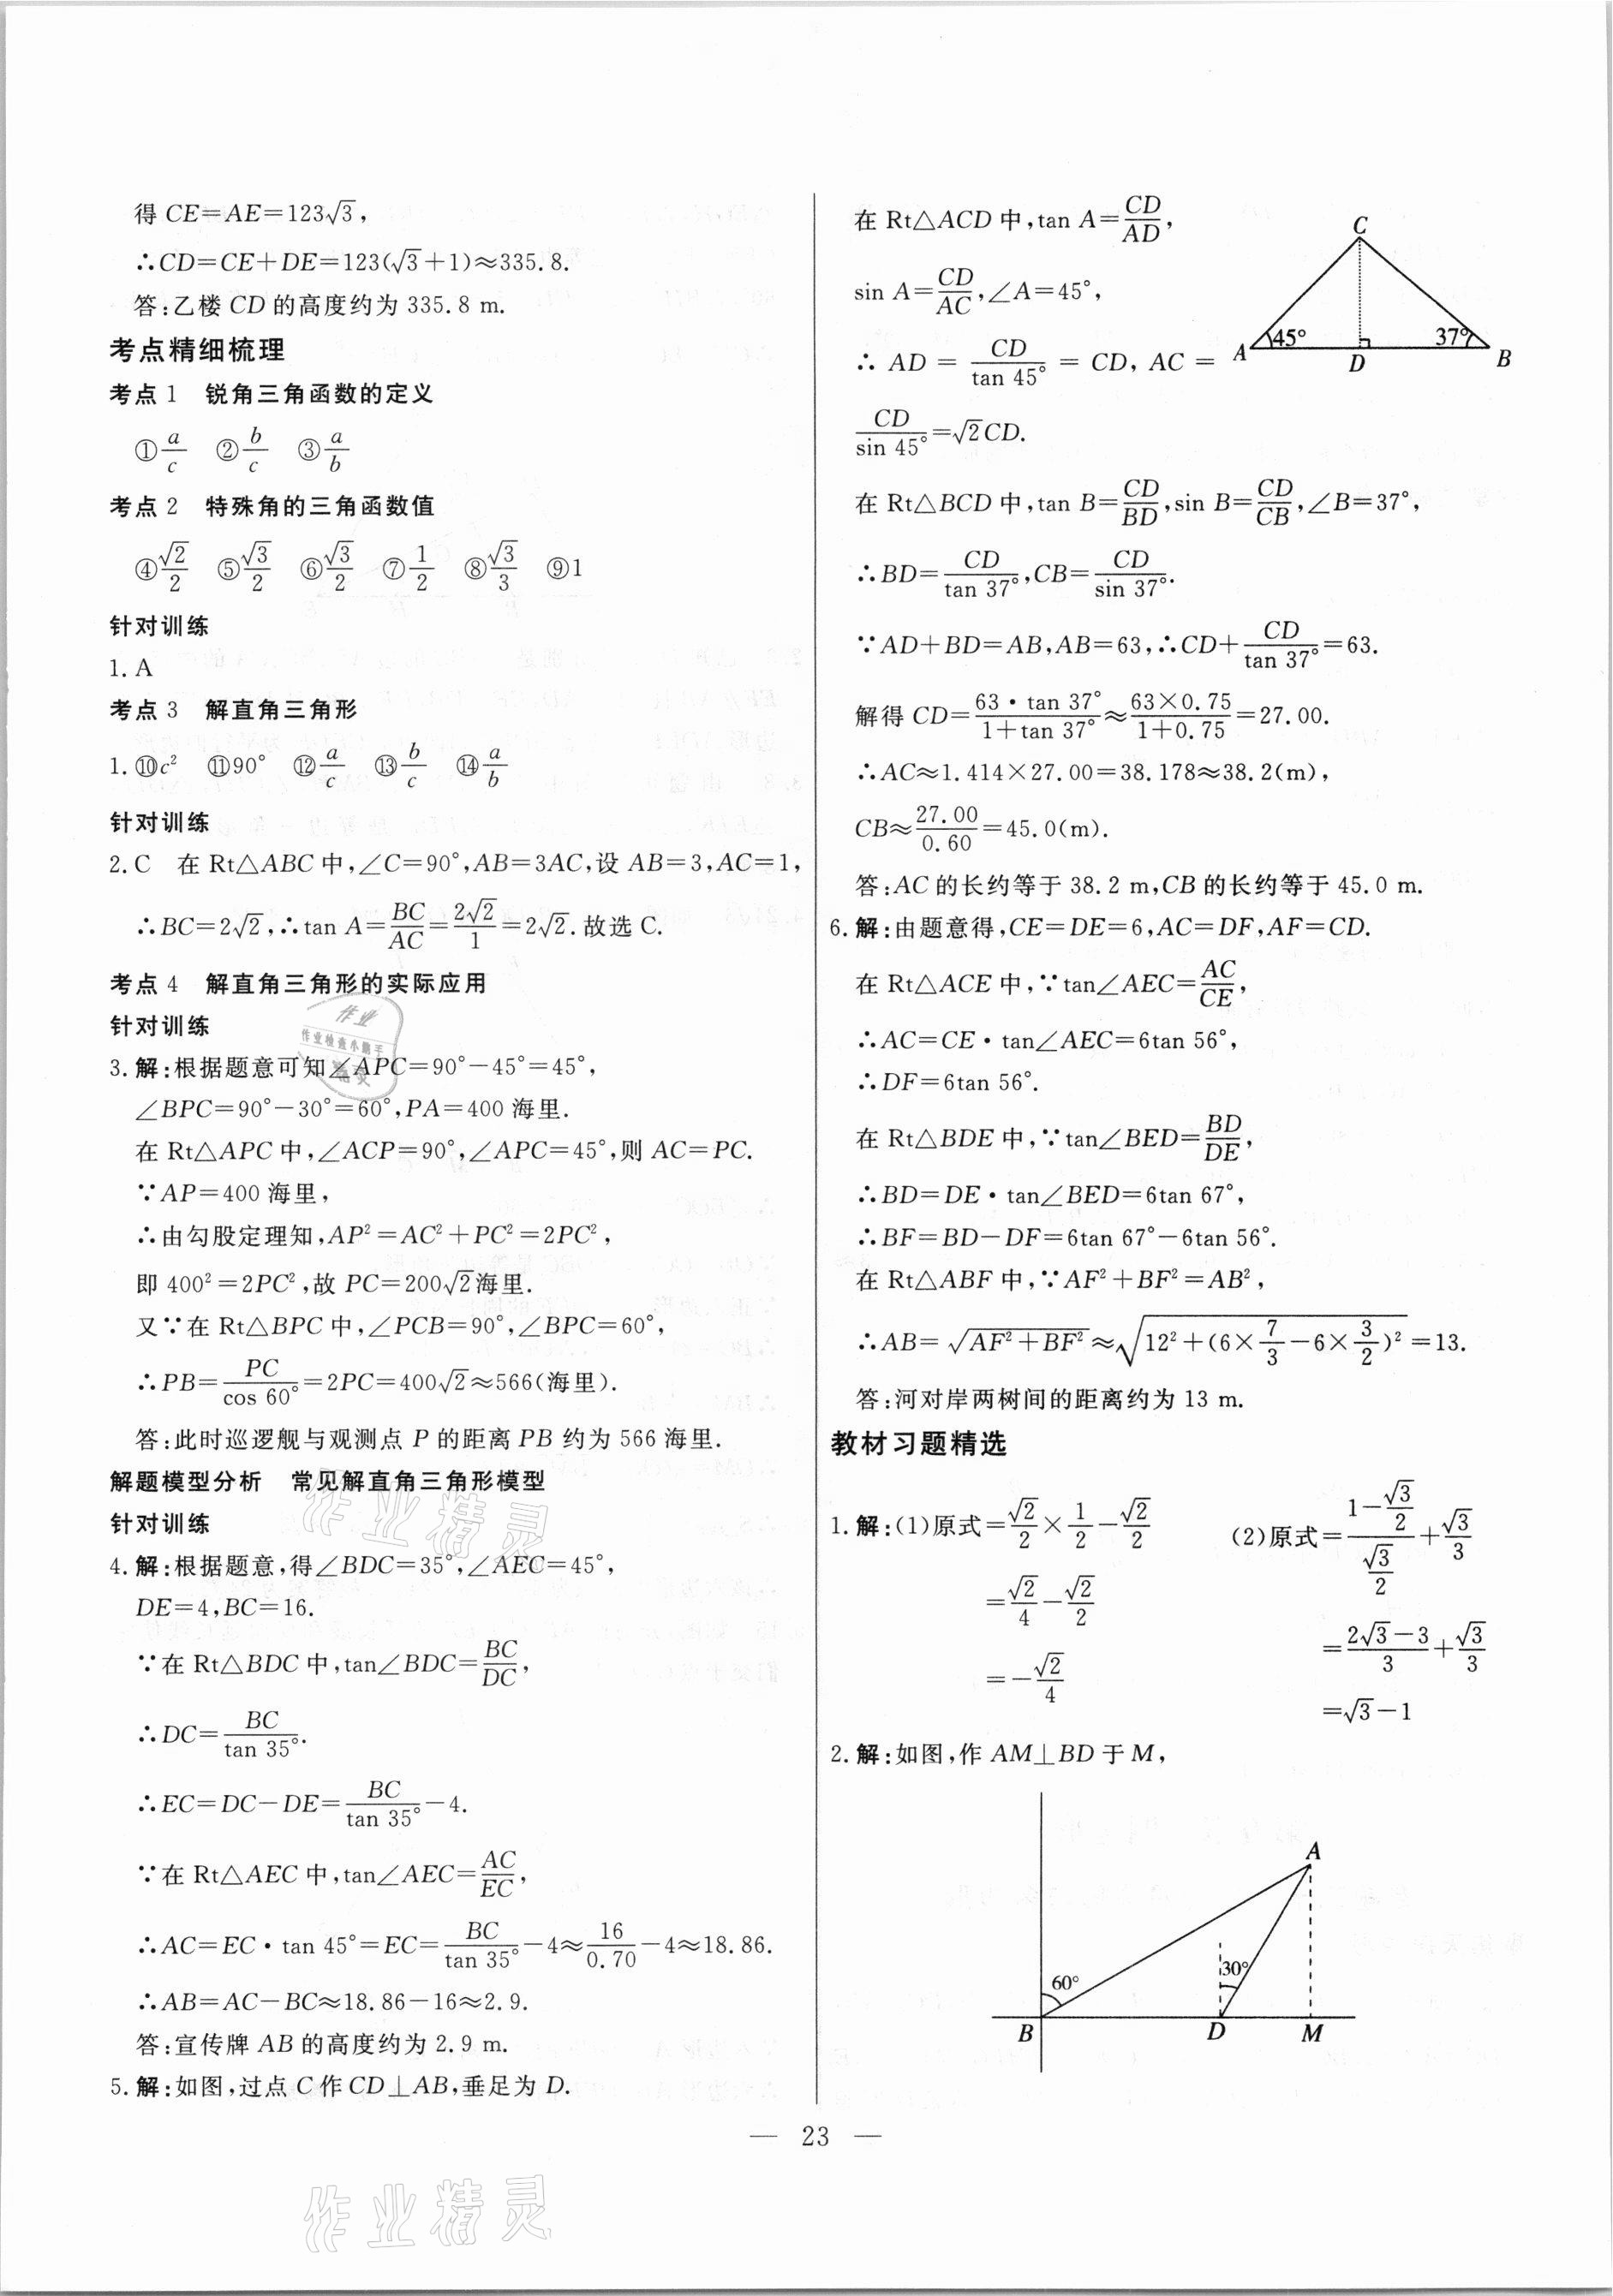 得 CE=AE=123√3,
∴CD=CE+DE=123(√3+1)≈335.8.
答:乙楼 CD 的高度约为 335.8 m.
考点精细梳理
考点 1 锐角三角函数的定义
①a/c ②b/c ③a/b
考点 2 特殊角的三角函数值
④√2/2 ⑤√3/2 ⑥√3/2 ⑦1/2 ⑧√3/3 ⑨1
针对训练
1. A
考点 3 解直角三角形
1. ⑩c² ⑪90° ⑫a/c ⑬b/c ⑭a/b
针对训练
2. C 在 Rt△ABC 中,∠C=90°,AB=3AC,设 AB=3,AC=1,
∴BC=2√2,∴tan A=BC/AC=2√2/1=2√2.故选 C.
考点 4 解直角三角形的实际应用
针对训练
3. 解:根据题意可知∠APC=90°-45°=45°,
∠BPC=90°-30°=60°,PA=400 海里.
在 Rt△APC 中,∠ACP=90°,∠APC=45°,则 AC=PC.
∵AP=400 海里,
∴由勾股定理知,AP²=AC²+PC²=2PC²,
即 400²=2PC²,故 PC=200√2海里.
又∵在 Rt△BPC 中,∠PCB=90°,∠BPC=60°,
∴PB=PC/cos 60°=2PC=400√2≈566(海里).
答:此时巡逻舰与观测点 P 的距离 PB 约为 566 海里.
解题模型分析 常见解直角三角形模型
针对训练
4. 解:根据题意,得∠BDC=35°,∠AEC=45°,
DE=4,BC=16.
∵在 Rt△BDC 中,tan∠BDC=BC/DC,
∴DC=BC/tan 35°.
∴EC=DC-DE=BC/tan 35°-4.
∵在 Rt△AEC 中,tan∠AEC=AC/EC,
∴AC=EC·tan 45°=EC=BC/tan 35°-4≈16/0.70-4≈18.86.
∴AB=AC-BC≈18.86-16≈2.9.
答:宣传牌 AB 的高度约为 2.9 m.
5. 解:如图,过点 C 作 CD⊥AB,垂足为 D.
在 Rt△ACD 中,tan A=CD/AD,
sin A=CD/AC,∠A=45°,
∴ AD = CD/tan 45° = CD, AC =
CD/sin 45°=√2CD.
C
A
45°
D
37°
B
在 Rt△BCD 中,tan B=CD/BD,sin B=CD/CB,∠B=37°,
∴BD=CD/tan 37°,CB=CD/sin 37°.
∵AD+BD=AB,AB=63,∴CD+CD/tan 37°=63.
解得 CD=63·tan 37°/1+tan 37°≈63×0.75/1+0.75=27.00.
∴AC≈1.414×27.00=38.178≈38.2(m),
CB≈27.00/0.60=45.0(m).
答:AC 的长约等于 38.2 m,CB 的长约等于 45.0 m.
6. 解:由题意得,CE=DE=6,AC=DF,AF=CD.
在 Rt△ACE 中,∵tan∠AEC=AC/CE,
∴AC=CE·tan∠AEC=6tan 56°,
∴DF=6tan 56°.
在 Rt△BDE 中,∵tan∠BED=BD/DE,
∴BD=DE·tan∠BED=6tan 67°,
∴BF=BD-DF=6tan 67°-6tan 56°.
在 Rt△ABF 中,∵AF²+BF²=AB²,
∴AB=√(AF²+BF²)≈√(12²+(6×7/3-6×3/2)²)=13.
答:河对岸两树间的距离约为 13 m.
教材习题精选
1. 解:(1)原式=√2/2×1/2-√2/2
=√2/4-√2/2
=-√2/4
(2)原式=(1-√3/2)/(√3/2)+√3/3
=(2√3-3)/3+√3/3
=√3-1
2. 解:如图,作 AM⊥BD 于 M,
A
60°
30°
B
D
M
— 23 —
作业
作业检查小助手
作业精灵
作业精灵